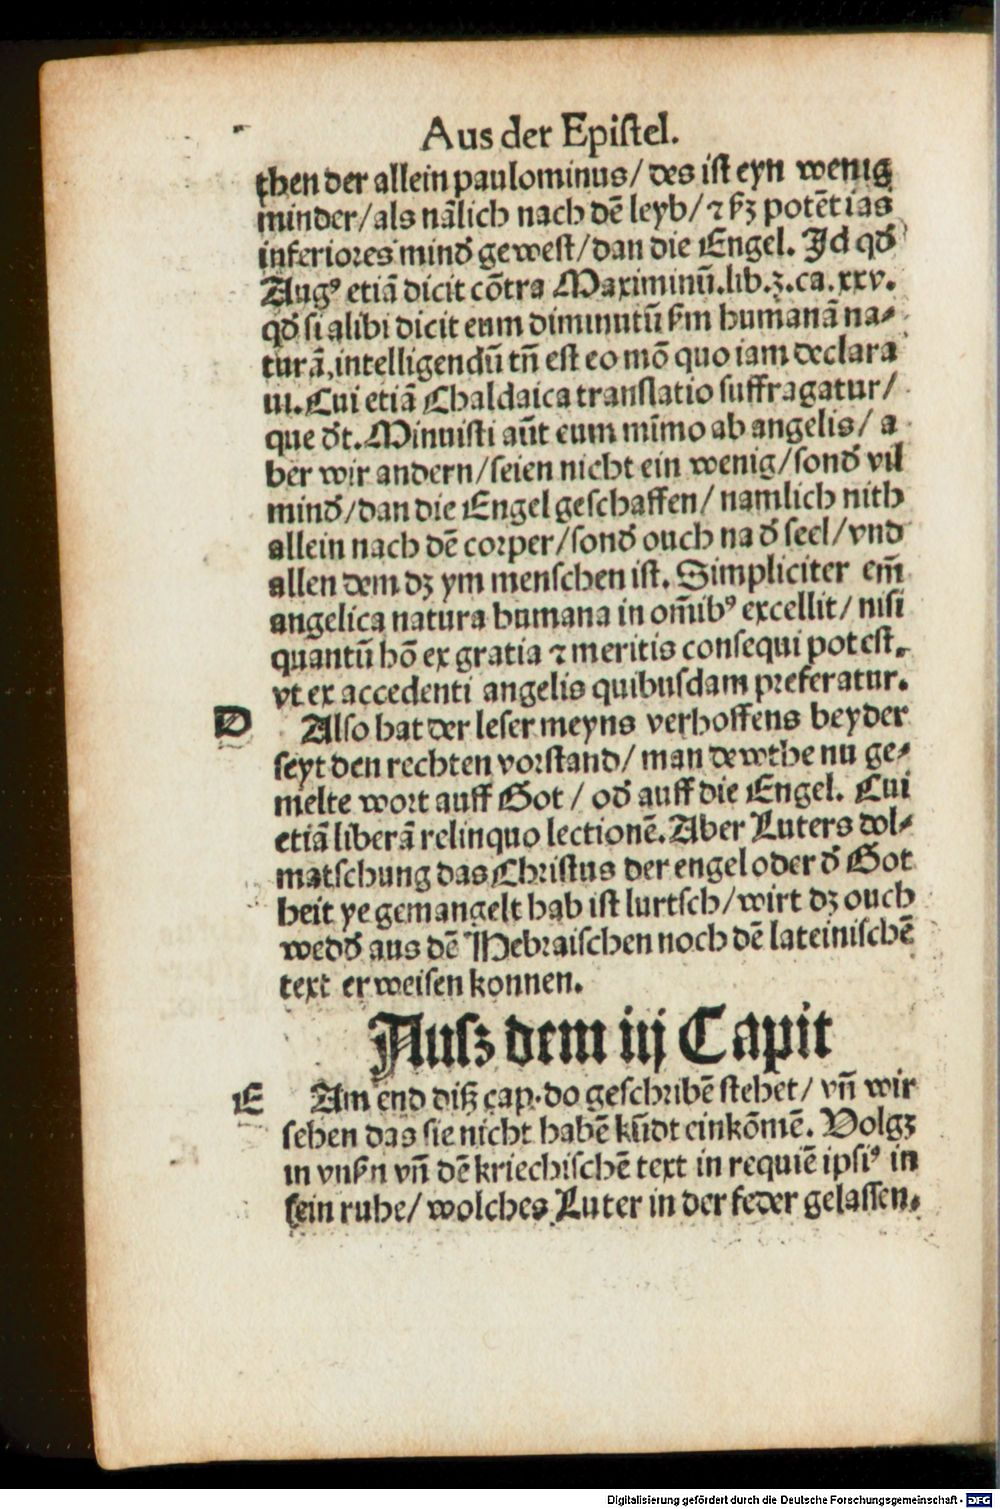 Aus der Epistel.
then der allein paulominus/ des ist eyn wenig
minder/als nãlich nach dẽ leyb/ ⁊ ẞz potẽtias
inferiores mind̕ gewest/dan die Engel. Id qd̕
Augꝰ etiã dicit cõtra Maximinũ.lib.3.ca.xxv.
qd̕ si alibi dicit eum diminutũ ẞm humanã na-
turã,intelligendũ tñ est eo mõ quo iam declara
ui. Cui etiã Chaldaica translatio suffragatur/
que d̕t. Minuisti aũt eum mĩmo ab angelis/ a
ber wir andern/seien nicht ein wenig/sond̕ vil
mind̕/dan die Engel geschaffen/ namlich nith
allein nach dẽ corper/sond̕ ouch na d̕ seel/vnd
allen dem dz ym menschen ist. Simpliciter em̃
angelica natura humana in om̃ibꝰ excellit/ nisi
quantũ hõ ex gratia ⁊ meritis consequi potest.
vt ex accedenti angelis quibusdam preferatur.
D Also hat der leser meyns verhoffens beyder
seyt den rechten vorstand/ man dewthe nu ge-
melte wort auff Got / od̕ auff die Engel. Cui
etiã liberã relinquo lectionẽ. Aber Luters dol-
matschung das Christus der engel oder d̕ Got
heit ye gemangelt hab ist lurtsch/wirt dz ouch
wedd̕ aus dẽ Hebraischen noch dẽ lateinischẽ
text erweisen konnen.
Ausz dem iij Capit
E Am end disz cap.do geschribẽ stehet/ vñ wir
sehen das sie nicht habẽ kũdt einkõmẽ. Volgz
in vnßn vñ dẽ kriechischẽ text in requiẽ ipsiꝰ in
sein ruhe/ wolches Luter in der feder gelassen.
Digitalisierung gefördert durch die Deutsche Forschungsgemeinschaft - DFG